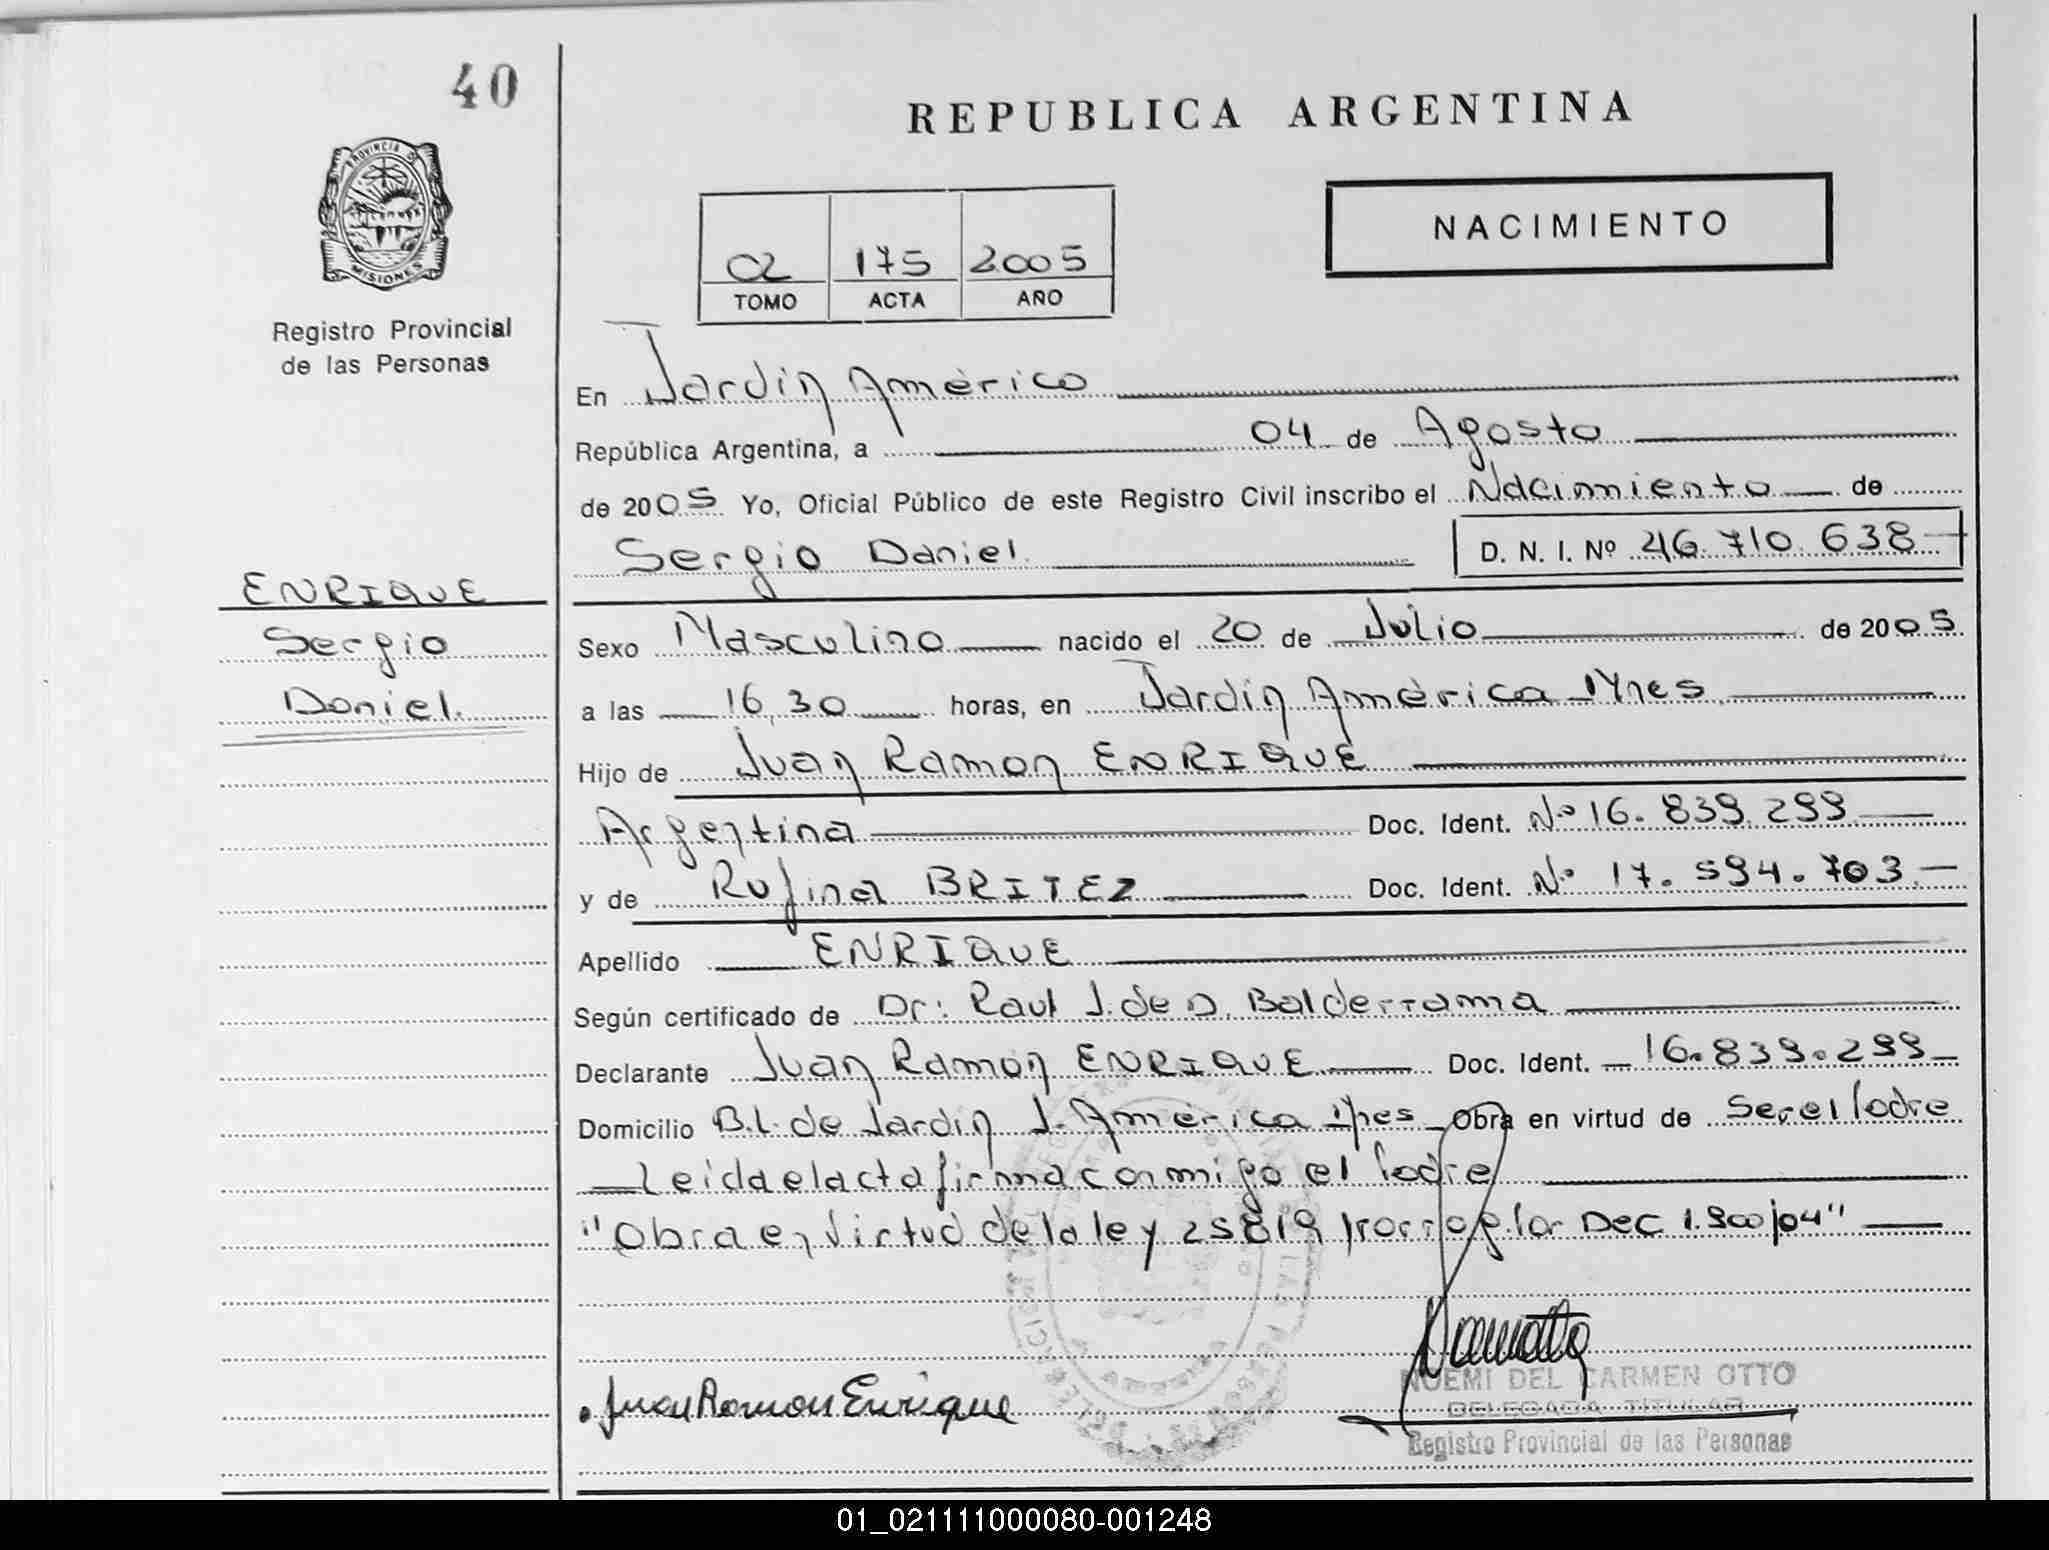 40
REPUBLICA ARGENTINA
PROVINCIA DE
MISIONES
Registro Provincial
de las Personas
NACIMIENTO
02 175 2005
TOMO ACTA AÑO
En Jardín América
República Argentina, a 04 de Agosto
de 2005 Yo, Oficial Público de este Registro Civil inscribo el Nacimiento de
Sergio Daniel D. N. I. Nº 46.710.638
ENRIQUE
Sergio
Daniel.
Sexo Masculino nacido el 20 de Julio de 2005
a las 16,30 horas, en Jardín América Mnes
Hijo de Juan Ramon ENRIQUE
Argentina Doc. Ident. Nº 16.839.299
y de Rufina BRITEZ Doc. Ident. Nº 17.594.703
Apellido ENRIQUE
Según certificado de Dr: Raul J. de D. Balderrama
Declarante Juan Ramón ENRIQUE Doc. Ident. 16.839.299
Domicilio B.L. de Jardín J. América Mnes Obra en virtud de Ser el Padre
Leida el acta firma conmigo el Padre
"Obra en virtud de la ley 25819 por Dec 1.900/04"
Juan Ramon Enrique
NOEMI DEL CARMEN OTTO
DELEGADA TITULAR
Registro Provincial de las Personas
01_021111000080-001248